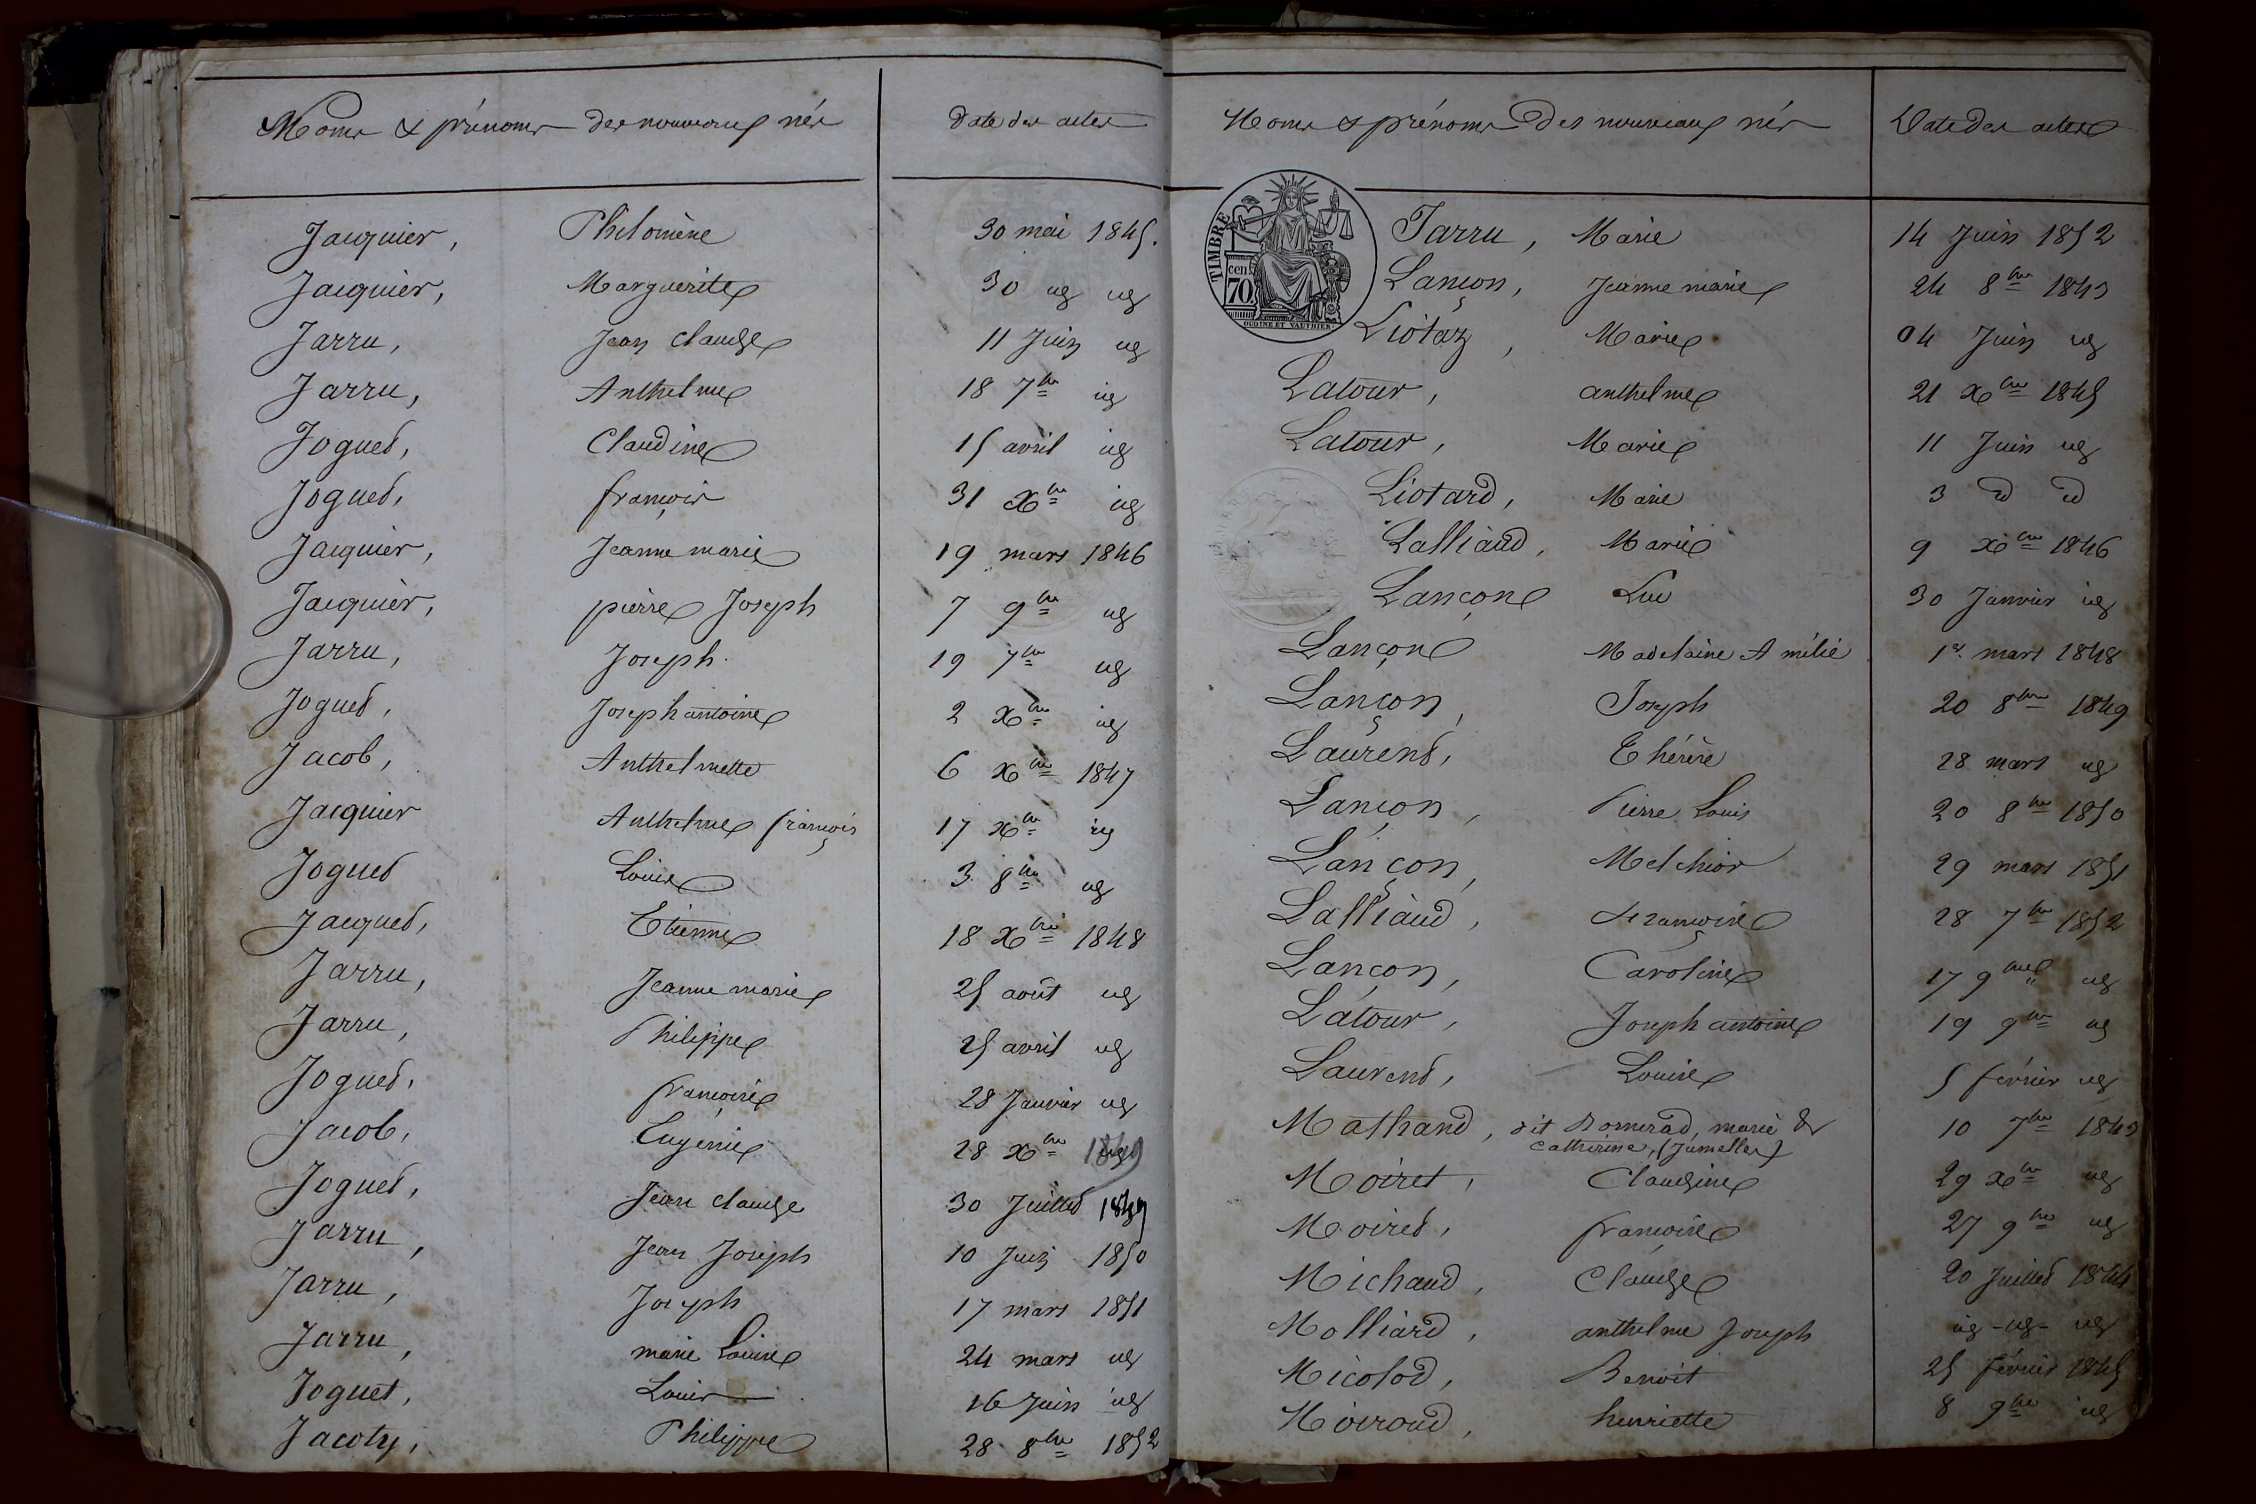 Noms & prénoms des nouveaux nés
Date des actes
Jacquier, Philomène 30 mai 1845.
Jacquier, Marguerite 30 id id
Jarru, Jean Claude 11 Juin id
Jarru, Anthelme 18 7bre id
Joguet, Claudine 15 avril id
Joguet, françois 31 Xbre id
Jacquier, Jeanne marie 19 mars 1846
Jacquier, pierre Joseph 7 9bre id
Jarru, Joseph. 19 7bre id
Joguet, Joseph antoine 2 Xbre id
Jacob, Anthelmette 6 Xbre 1847
Jacquier Anthelme françois 17 Xbre id
Joguet Louise 3 8bre id
Jacquet, Etienne 18 Xbre 1848
Jarru, Jeanne marie 25 août id
Jarru, Philippe 25 avril id
Joguet, françoise 28 Janvier id
Jacob, Eugénie 28 Xbre 1849
Joguet, Jean claude 30 Juillet 1849
Jarru, Jean Joseph 10 Juin 1850
Jarru, Joseph 17 mars 1851
Jarru, marie Louise 24 mars id
Joguet, Louis 16 Juin id
Jacoty, Philippe 28 8bre 1852
Noms & prénoms des nouveaux nés
Date des actes
TIMBRE
cen. 70
OUDINE ET VAUTHIER
Jarru, Marie 14 Juin 1852
Lançon, Jeanne marie 24 8bre 1843
Liotaz, Marie 04 Juin id
Latour, anthelme 21 Xbre 1845
Latour, Marie 11 Juin id
Liotard, Marie 3 d d
Lalliaud, Marie 9 Xbre 1846
Lançon Luc 30 Janvier id
Lançon Madelaine Amélie 1er mars 1848
Lançon, Joseph 20 8bre 1849
Laurent, Thérèse 28 mars id
Lançon, Pierre Louis 20 8bre 1850
Lançon, Melchior 29 mars 1851
Lalliaud, françoise 28 7bre 1852
Lançon, Caroline 17 9bre id
Latour, Joseph antoine 19 9bre id
Laurent, Louise 5 février id
Mathand, dit Bomerad, marie &
Catherine, (Jumelles) 10 7bre 1843
Moiret, Claudine 29 Xbre id
Moiret, françoise 27 9bre id
Michaud, Claude 20 Juillet 1844
Molliard, anthelme Joseph id - id - id
Micolod, Benoît 25 février 1845
Moiroud, henriette 8 9bre id